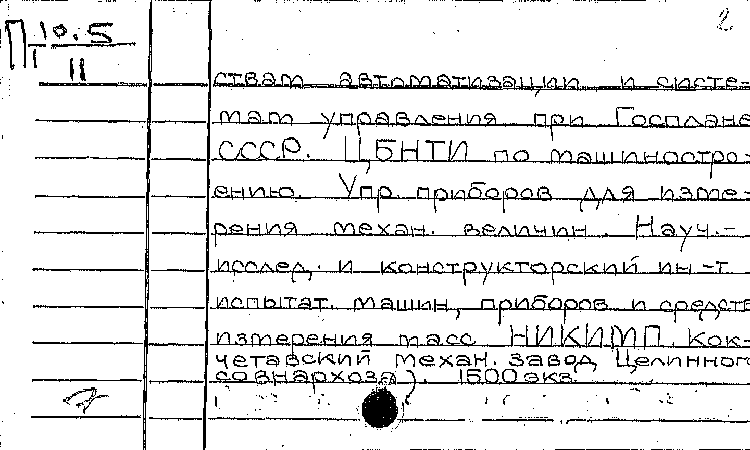 2
П 10.5
I II
ствам автоматизации и систе-
мам управления при Госплане
СССР. ЦБНТИ по машиностро-
ению. Упр. приборов для изме-
рения механ. величин. Науч.-
исслед. и конструкторский ин-т
испытат. машин, приборов и средств
измерения масс НИКИМП. Кок-
четавский механ. завод Целинного
совнархоза). 1500 экз.